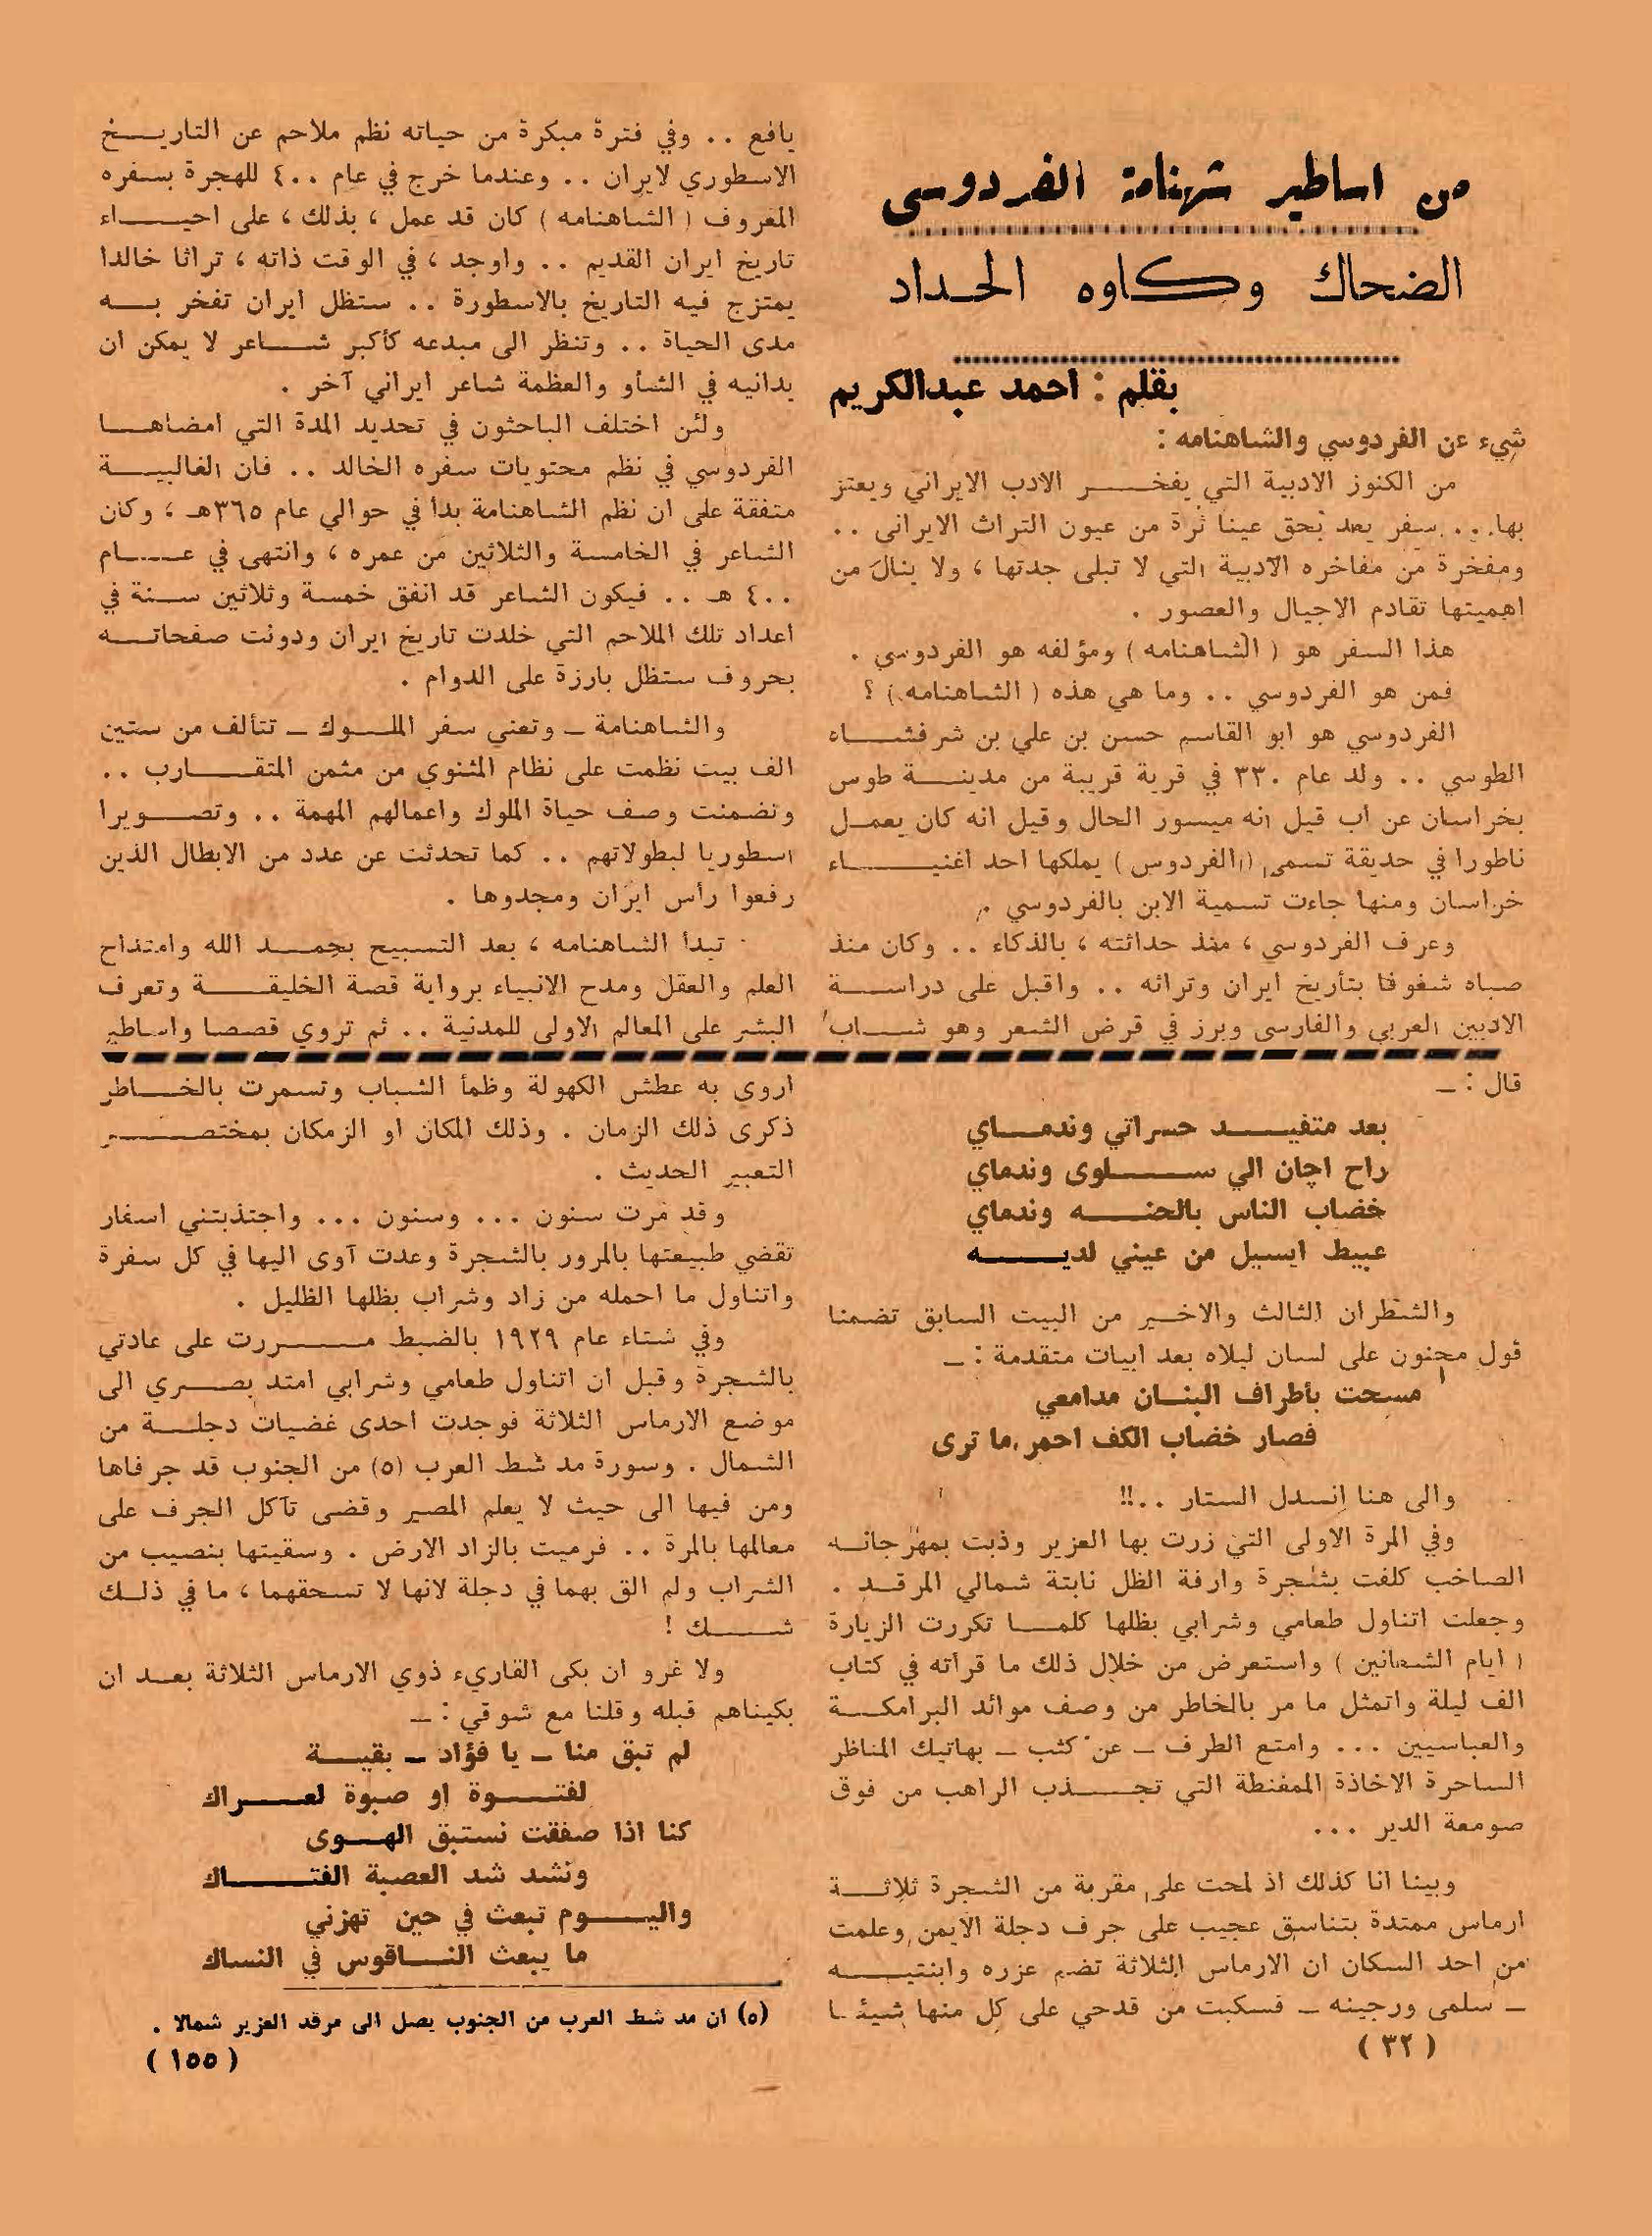 من اساطير شهنامة الفردوسى
الضحاك وكاوه الحداد
بقلم : احمد عبدالكريم
شيء عن الفردوسي والشاهنامه :
من الكنوز الادبية التي يفخر الادب الايراني ويعتز
بها . . سفر يعد بحق عينا ثرة من عيون التراث الايراني . .
ومفخرة من مفاخره الادبية التي لا تبلى جدتها ، ولا ينال من
اهميتها تقادم الاجيال والعصور .
هذا السفر هو ( الشاهنامه ) ومؤلفه هو الفردوسي .
فمن هو الفردوسي . . وما هي هذه ( الشاهنامه ) ؟
الفردوسي هو ابو القاسم حسن بن علي بن شرفشاه
الطوسي . . ولد عام ٣٣٠ في قرية قريبة من مدينة طوس
بخراسان عن اب قيل انه ميسور الحال وقيل انه كان يعمل
ناطورا في حديقة تسمى ( الفردوس ) يملكها احد اغنياء
خراسان ومنها جاءت تسمية الابن بالفردوسي .
وعرف الفردوسي ، منذ حداثته ، بالذكاء . . وكان منذ
صباه شغوفا بتأريخ ايران وتراثه . . واقبل على دراسة
الادبين العربي والفارسي وبرز في قرض الشعر وهو شاب
يافع . . وفي فترة مبكرة من حياته نظم ملاحم عن التاريخ
الاسطوري لايران . . وعندما خرج في عام ٤٠٠ للهجرة بسفره
المعروف ( الشاهنامه ) كان قد عمل ، بذلك ، على احياء
تاريخ ايران القديم . . واوجد ، في الوقت ذاته ، تراثا خالدا
يمتزج فيه التاريخ بالاسطورة . . ستظل ايران تفخر به
مدى الحياة . . وتنظر الى مبدعه كأكبر شاعر لا يمكن ان
يدانيه في الشأو والعظمة شاعر ايراني آخر .
ولئن اختلف الباحثون في تحديد المدة التي امضاها
الفردوسي في نظم محتويات سفره الخالد . . فان الغالبية
متفقة على ان نظم الشاهنامة بدأ في حوالي عام ٣٦٥هـ ، وكان
الشاعر في الخامسة والثلاثين من عمره ، وانتهى في عام
٤٠٠ هـ . . فيكون الشاعر قد انفق خمسة وثلاثين سنة في
اعداد تلك الملاحم التي خلدت تاريخ ايران ودونت صفحاته
بحروف ستظل بارزة على الدوام .
والشاهنامة ــ وتعني سفر الملوك ــ تتألف من ستين
الف بيت نظمت على نظام المثنوي من مثمن المتقارب . .
وتضمنت وصف حياة الملوك واعمالهم المهمة . . وتصويرا
اسطوريا لبطولاتهم . . كما تحدثت عن عدد من الابطال الذين
رفعوا رأس ايران ومجدوها .
تبدأ الشاهنامه ، بعد التسبيح بحمد الله وامتداح
العلم والعقل ومدح الانبياء برواية قصة الخليقة وتعرف
البشر على المعالم الاولى للمدنية . . ثم تروي قصصا واساطير
قال : ــ
بعد متفيد حسراتي وندماي
راح اچان الي سلوى وندماي
خضاب الناس بالحنه وندماي
عبيط ايسيل من عيني لديه
والشطران الثالث والاخير من البيت السابق تضمنا
قول مجنون على لسان ليلاه بعد ابيات متقدمة : ــ
مسحت بأطراف البنان مدامعي
فصار خضاب الكف احمر ما ترى
والى هنا انسدل الستار . . !!
وفي المرة الاولى التي زرت بها العزير وذبت بمهرجانه
الصاخب كلفت بشجرة وارفة الظل نابتة شمالي المرقد .
وجعلت اتناول طعامي وشرابي بظلها كلما تكررت الزيارة
( ايام الشعانين ) واستعرض من خلال ذلك ما قرأته في كتاب
الف ليلة واتمثل ما مر بالخاطر من وصف موائد البرامكة
والعباسيين . . . وامتع الطرف ــ عن كثب ــ بهاتيك المناظر
الساحرة الاخاذة الممغنطة التي تجذب الراهب من فوق
صومعة الدير . . .
وبينا انا كذلك اذ لمحت على مقربة من الشجرة ثلاثة
ارماس ممتدة بتناسق عجيب على جرف دجلة الايمن وعلمت
من احد السكان ان الارماس الثلاثة تضم عزره وابنتيه
ــ سلمى ورجينه ــ فسكبت من قدحي على كل منها شيئا
( ٣٢ )
اروى به عطش الكهولة وظمأ الشباب وتسمرت بالخاطر
ذكرى ذلك الزمان . وذلك المكان او الزمكان بمختصر
التعبير الحديث .
وقد مرت سنون . . . وسنون . . . واجتذبتني اسفار
تقضي طبيعتها بالمرور بالشجرة وعدت آوى اليها في كل سفرة
واتناول ما احمله من زاد وشراب بظلها الظليل .
وفي شتاء عام ١٩٢٩ بالضبط مررت على عادتي
بالشجرة وقبل ان اتناول طعامي وشرابي امتد بصري الى
موضع الارماس الثلاثة فوجدت احدى غضبات دجلة من
الشمال . وسورة مد شط العرب (٥) من الجنوب قد جرفاها
ومن فيها الى حيث لا يعلم المصير وقضى تآكل الجرف على
معالمها بالمرة . . فرميت بالزاد الارض . وسقيتها بنصيب من
الشراب ولم الق بهما في دجلة لانها لا تستحقهما ، ما في ذلك
شك !
ولا غرو ان بكى القاريء ذوي الارماس الثلاثة بعد ان
بكيناهم قبله وقلنا مع شوقي : ــ
لم تبق منا ــ يا فؤاد ــ بقية
لفتوة او صبوة لعراك
كنا اذا صفقت نستبق الهوى
ونشد شد العصبة الفتاك
واليوم تبعث في حين تهزني
ما يبعث الناقوس في النساك
(٥) ان مد شط العرب من الجنوب يصل الى مرقد العزير شمالا .
( ١٥٥ )